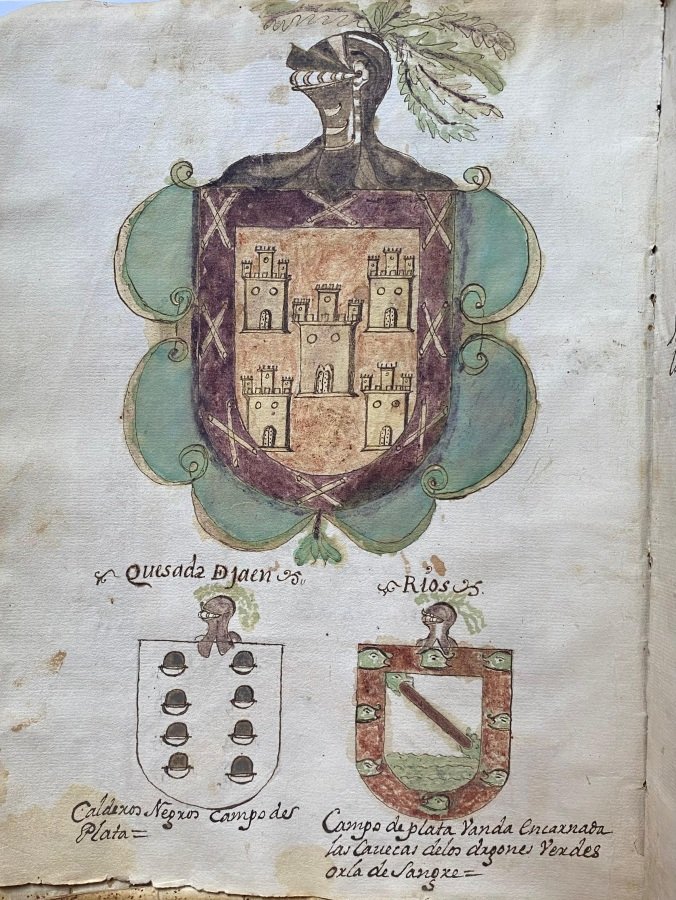 Quesada DJaen
Rios
Calderos Negros Campo des
Plata=
Campo de plata Vanda Encarnada
las Cavecas delos dragones Verdes
orla de Sangre=